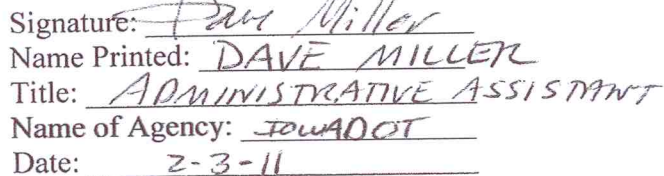 Signature: Dave Miller
Name Printed: DAVE MILLER
Title: ADMINISTRATIVE ASSISTANT
Name of Agency: IOWADOT
Date: 2-3-11